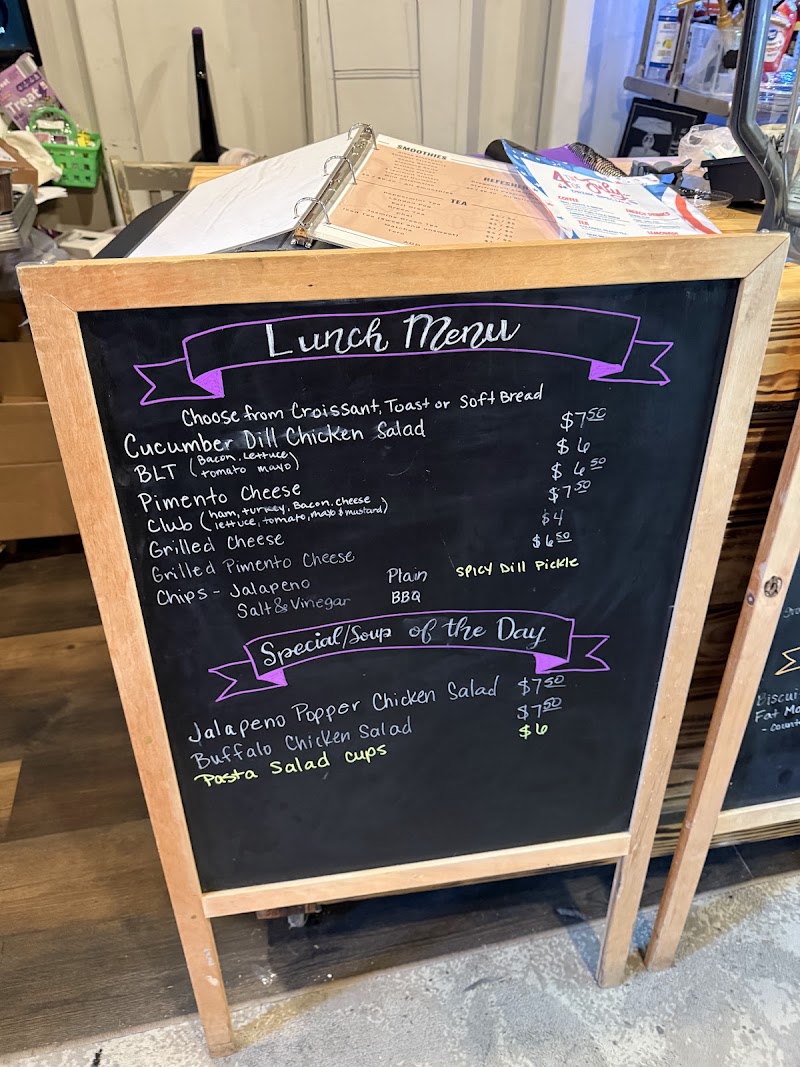 Treat
SMOOTHIES
REFRESHERS
TEA
MATCHA
COFFEE
ENERGY DRINKS
TEA
LEMONADE
Lunch Menu
Choose from Croissant, Toast or Soft Bread
Cucumber Dill Chicken Salad $7.50
BLT (Bacon, Lettuce, tomato mayo) $6
Pimento Cheese $6.50
Club (ham, turkey, Bacon, cheese lettuce, tomato, mayo & mustard) $7.50
Grilled Cheese $4
Grilled Pimento Cheese $6.50
Chips - Jalapeno Plain Spicy Dill Pickle
Salt & Vinegar BBQ
Special/Soup of the Day
Jalapeno Popper Chicken Salad $7.50
Buffalo Chicken Salad $7.50
Pasta Salad cups $6
Biscui
Fat Mo
- Count